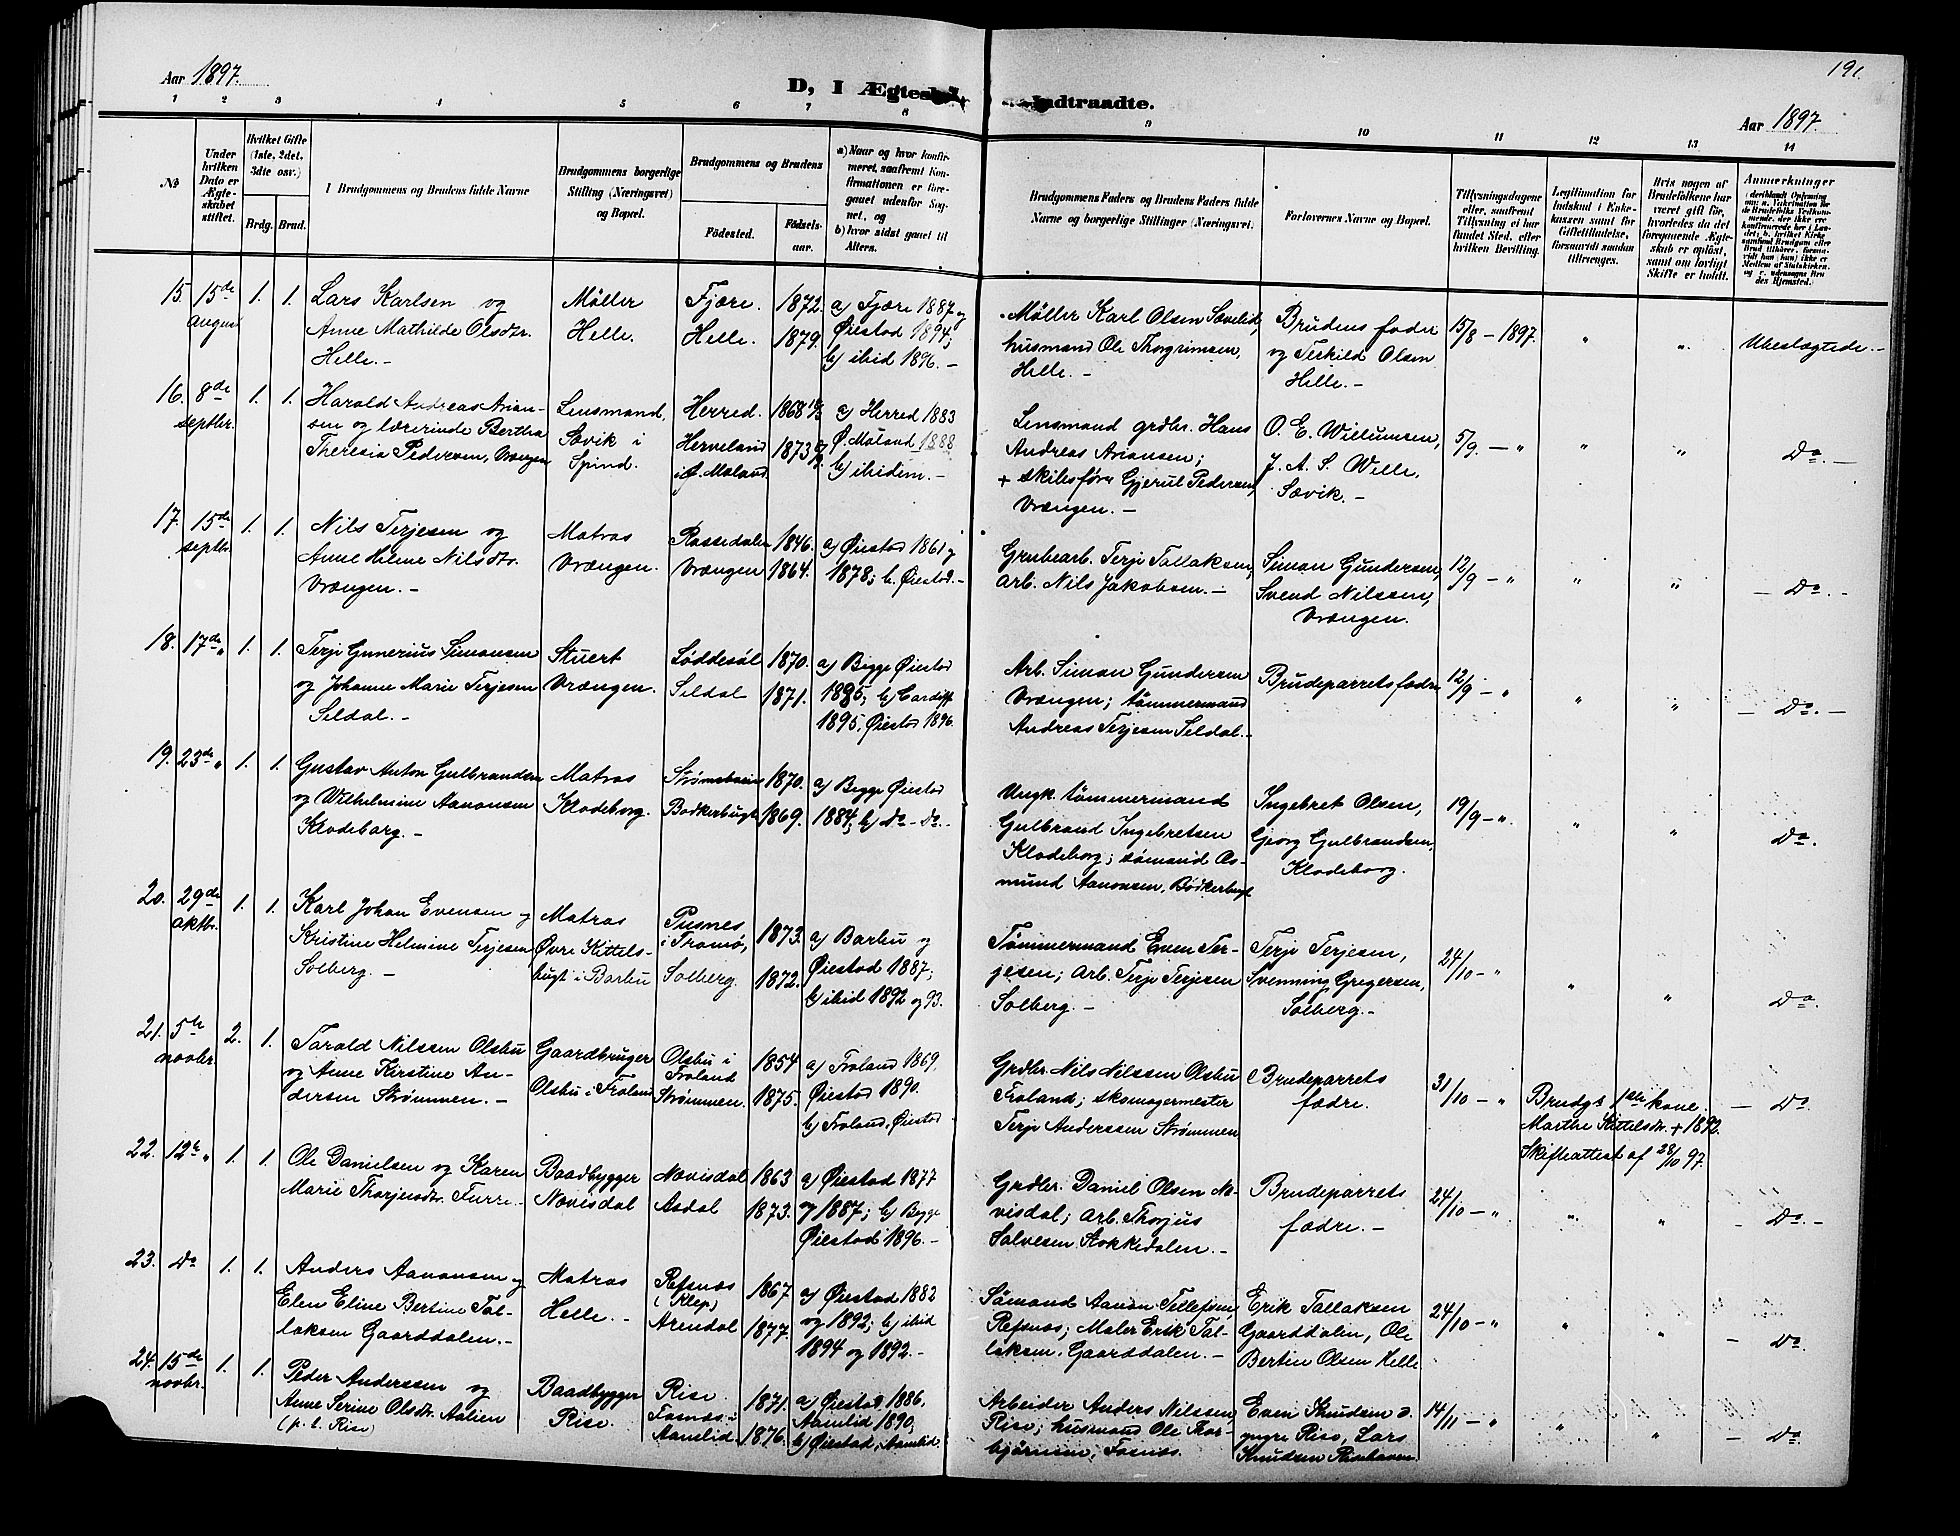 191.
Aar 1897.
D, I Ægtes
Indtraadte.
Aar 1897.
1 2 3 4 5 6 7 8 9 10 11 12 13 14
No
Under hvilken Dato er Ægteskabet stiftet.
Hvilket Gifte (1ste, 2det, 3die osv.)
Brdg. Brud.
Brudgommens og Brudens fulde Navne
Brudgommens borgerlige Stilling (Næringsvei) og Bopæl.
Brudgommens og Brudens
Fødested.
Fødselsaar.
a) Naar og hvor konfirmeret, saafremt Konfirmationen er foregaaet udenfor Sognet, og
b) hvor sidst gaaet til Alters.
Brudgommens Faders og Brudens Faders fulde Navne og borgerlige Stillinger (Næringsvei.
Forlovernes Navne og Bopæl.
Tillysningsdagene eller, saafremt Tillysning ei har fundet Sted, efter hvilken Bevilling.
Legitimation for Indskud i Enkekassen samt for Giftetilladelse, forsaavidt saadan tiltrænges.
Hvis nogen af Brudefolkene har været gift før, hvorledes da det foregaaende Ægteskab er opløst, samt om lovligt Skifte er holdt.
Anmerkninger
15. 15de August 1. 1. Lars Karlsen og Anne Mathilde Olsdtr. Helle.-
Møller Helle.
Fjære. 1872. Helle. 1879.
a) Fjære 1887 og Øiestad 1894; b) ibid 1896.-
Møller Karl Olsen Sævelid, husmand Ole Thorgrimsen, Helle.-
Brudens fader og Terkild Olsen Helle.-
15/8 - 1897. " " Ubeslægtede.-
16. 8de septbr. 1. 1. Harald Andreas Ariansen og lærerinde Bertha Theresia Pedersen, Vrængen
Lensmand, Sævik i Spind.
Herred. 1868 Herveland i Ø. Moland. 1873
a) Herred 1883 Ø. Moland 1888 b) ibidem.-
Lensmand grdbr. Hans Andreas Ariansen; + skibsfører Gjerul Pedersen, Vrængen.-
O. E. Willumsen, J. A. S. Wille, Sævik.-
5/9. - " " " Do.-
17. 15de septbr. 1. 1. Nils Terjesen og Anne Helene Nilsdtr. Vrængen.-
Matros Vrængen.
Rossedalen 1846. Vrængen 1864.
a) Øiestad 1861 og 1878; b. Øiestad.-
Grubearb. Terje Tallaksen, arb. Nils Jakobsen.-
Simon Gundersen, Svend Nilssen, Vrængen.
12/9 - " " " - Do.-
18. 17de " 1. 1. Terje Gunerius Simonsen og Johanne Marie Terjesen Seldal.-
Stuert Vrængen.
Løddesøl 1870. Seldal 1871.
a) Begge Øiestad 1885; b) Cardiff 1895, Øiestad 1896.
Arb. Simon Gundersen Vrængen; tømmermand Andreas Terjesen Seldal.-
Brudeparrets fædre
12/9 - " " " - Do.-
19. 23de " 1. 1. Gustav Anton Gulbrandsen og Wilhelmine Aanonsen Klodeborg.-
Matros Klodeborg.
1870. Bødkerbugt 1869.
a) Begge Øiestad 1884; b) Do - Do.-
Ungk. tømmermand Gulbrand Ingebretsen Klodeborg; sømand Asmund Aanonsen, Bødkerbugt
Ingebret Olsen, Georg Gulbrandsen, Klodeborg.
19/9 - " " " Do.
20. 29de oktbr. 1. 1. Karl Johan Evensen og Kristine Helmine Terjesen Solberg.-
Matros Øvre Kittelsbugt i Barbu
Pusnes i Tromø, 1873. Solberg. 1872.
a) Barbu og Øiestad 1887; b) ibid 1892 og 93.
Tømmermand Even Terjesen; arb. Terje Terjesen Solberg.-
Terje Terjesen, Svenning Gregersen, Solberg.-
24/10 - " " " Do.
21. 5te novbr. 2. 1. Tarald Nilssen Olsbu og Anne Kirstine Andersen Strømmen.-
Gaardbruger Olsbu i Froland
Olsbu i Froland 1854 Strømmen. 1875.
a) Froland 1869, Øiestad 1890. b) Froland, Øiestad
Grdbr. Nils Nilssen Olsbu Froland; skomagermester Terje Anderssen Strømmen
Brudeparrets fædre.
31/10 - " Brudgs 1ste kone Marthe Kittelsdtr. + 1892. Skifteattest af 28/10 97. - Do
22. 12te " 1. 1. Ole Danielsen og Karen Marie Thorjusdtr. Furre.-
Baadbygger Nævisdal
Nævisdal 1863 Asdal 1873.
a) Øiestad 1877 og 1887; b) Begge Øiestad 1896.-
Grdbr. Daniel Olsen Nævisdal; arb. Thorjus Salvesen Stokkedalen.-
Brudeparrets fædre.-
24/10 - " " " - Do.-
23. Do 1. 1. Anders Aanonsen og Elen Eline Bertine Tallaksen Gaarddalen.-
Matros Helle.-
Refsnæs (Klep) 1867 Arendal 1877.
a) Øiestad 1882 og 1892; b) ibid 1894 og 1892.-
Sømand Aanon Tellefsen, Refsnæs; Maler Erik Tallaksen, Gaarddalen.-
Erik Tallaksen Gaarddalen, Ole Bertin Olsen Helle
24/10 - " " " - Do.
24. 15de novbr. 1. 1. Peder Anderssen og Anne Serine Olsdtr. Aalien (p. t. Rise)
Baadbygger Rise.
Rise. 1871. Fosnæs i Aamlid 1876.
a) Øiestad 1886, Aamlid 1890, b) Øiestad, Aamlid
Arbeider Anders Nilssen, Rise; husmand Ole Thorbjørnsen, Fosnæs.
Even Knudsen d. yngre Rise, Lars Knudsen Risehaven
14/11 - " " " - Do.